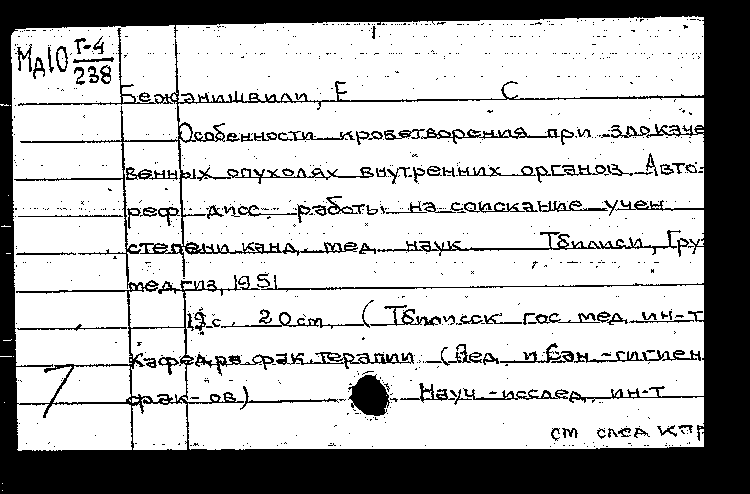 Мд10 Г-4
238
Бежанишвили, Е С
Особенности кроветворения при злокаче
венных опухолях внутренних органов Авто-
реф дисс работы на соискание учен
степени канд. мед. наук Тбилиси, Гру-
медгиз, 1951
19с. 20см. (Тбилисск гос. мед. ин-т
Кафедра фак. терапии (Пед. и Сан.-гигиен
фак-ов). Науч-исслед. ин-т
см след кар